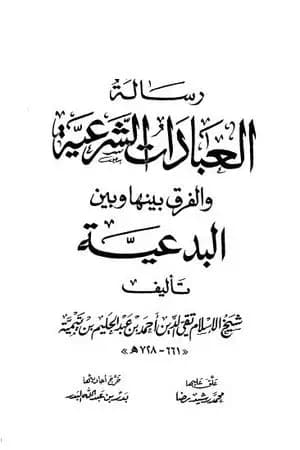 رسالة
العبادات الشرعية
والفرق بينها وبين
البدعية
تأليف
شيخ الإسلام تقي الدين أحمد بن عبد الحليم بن تيمية
«٦٦١ - ٧٢٨ هـ»
علق عليها خرج أحاديثها
محمد رشيد رضا بدر بن عبد الله البدر